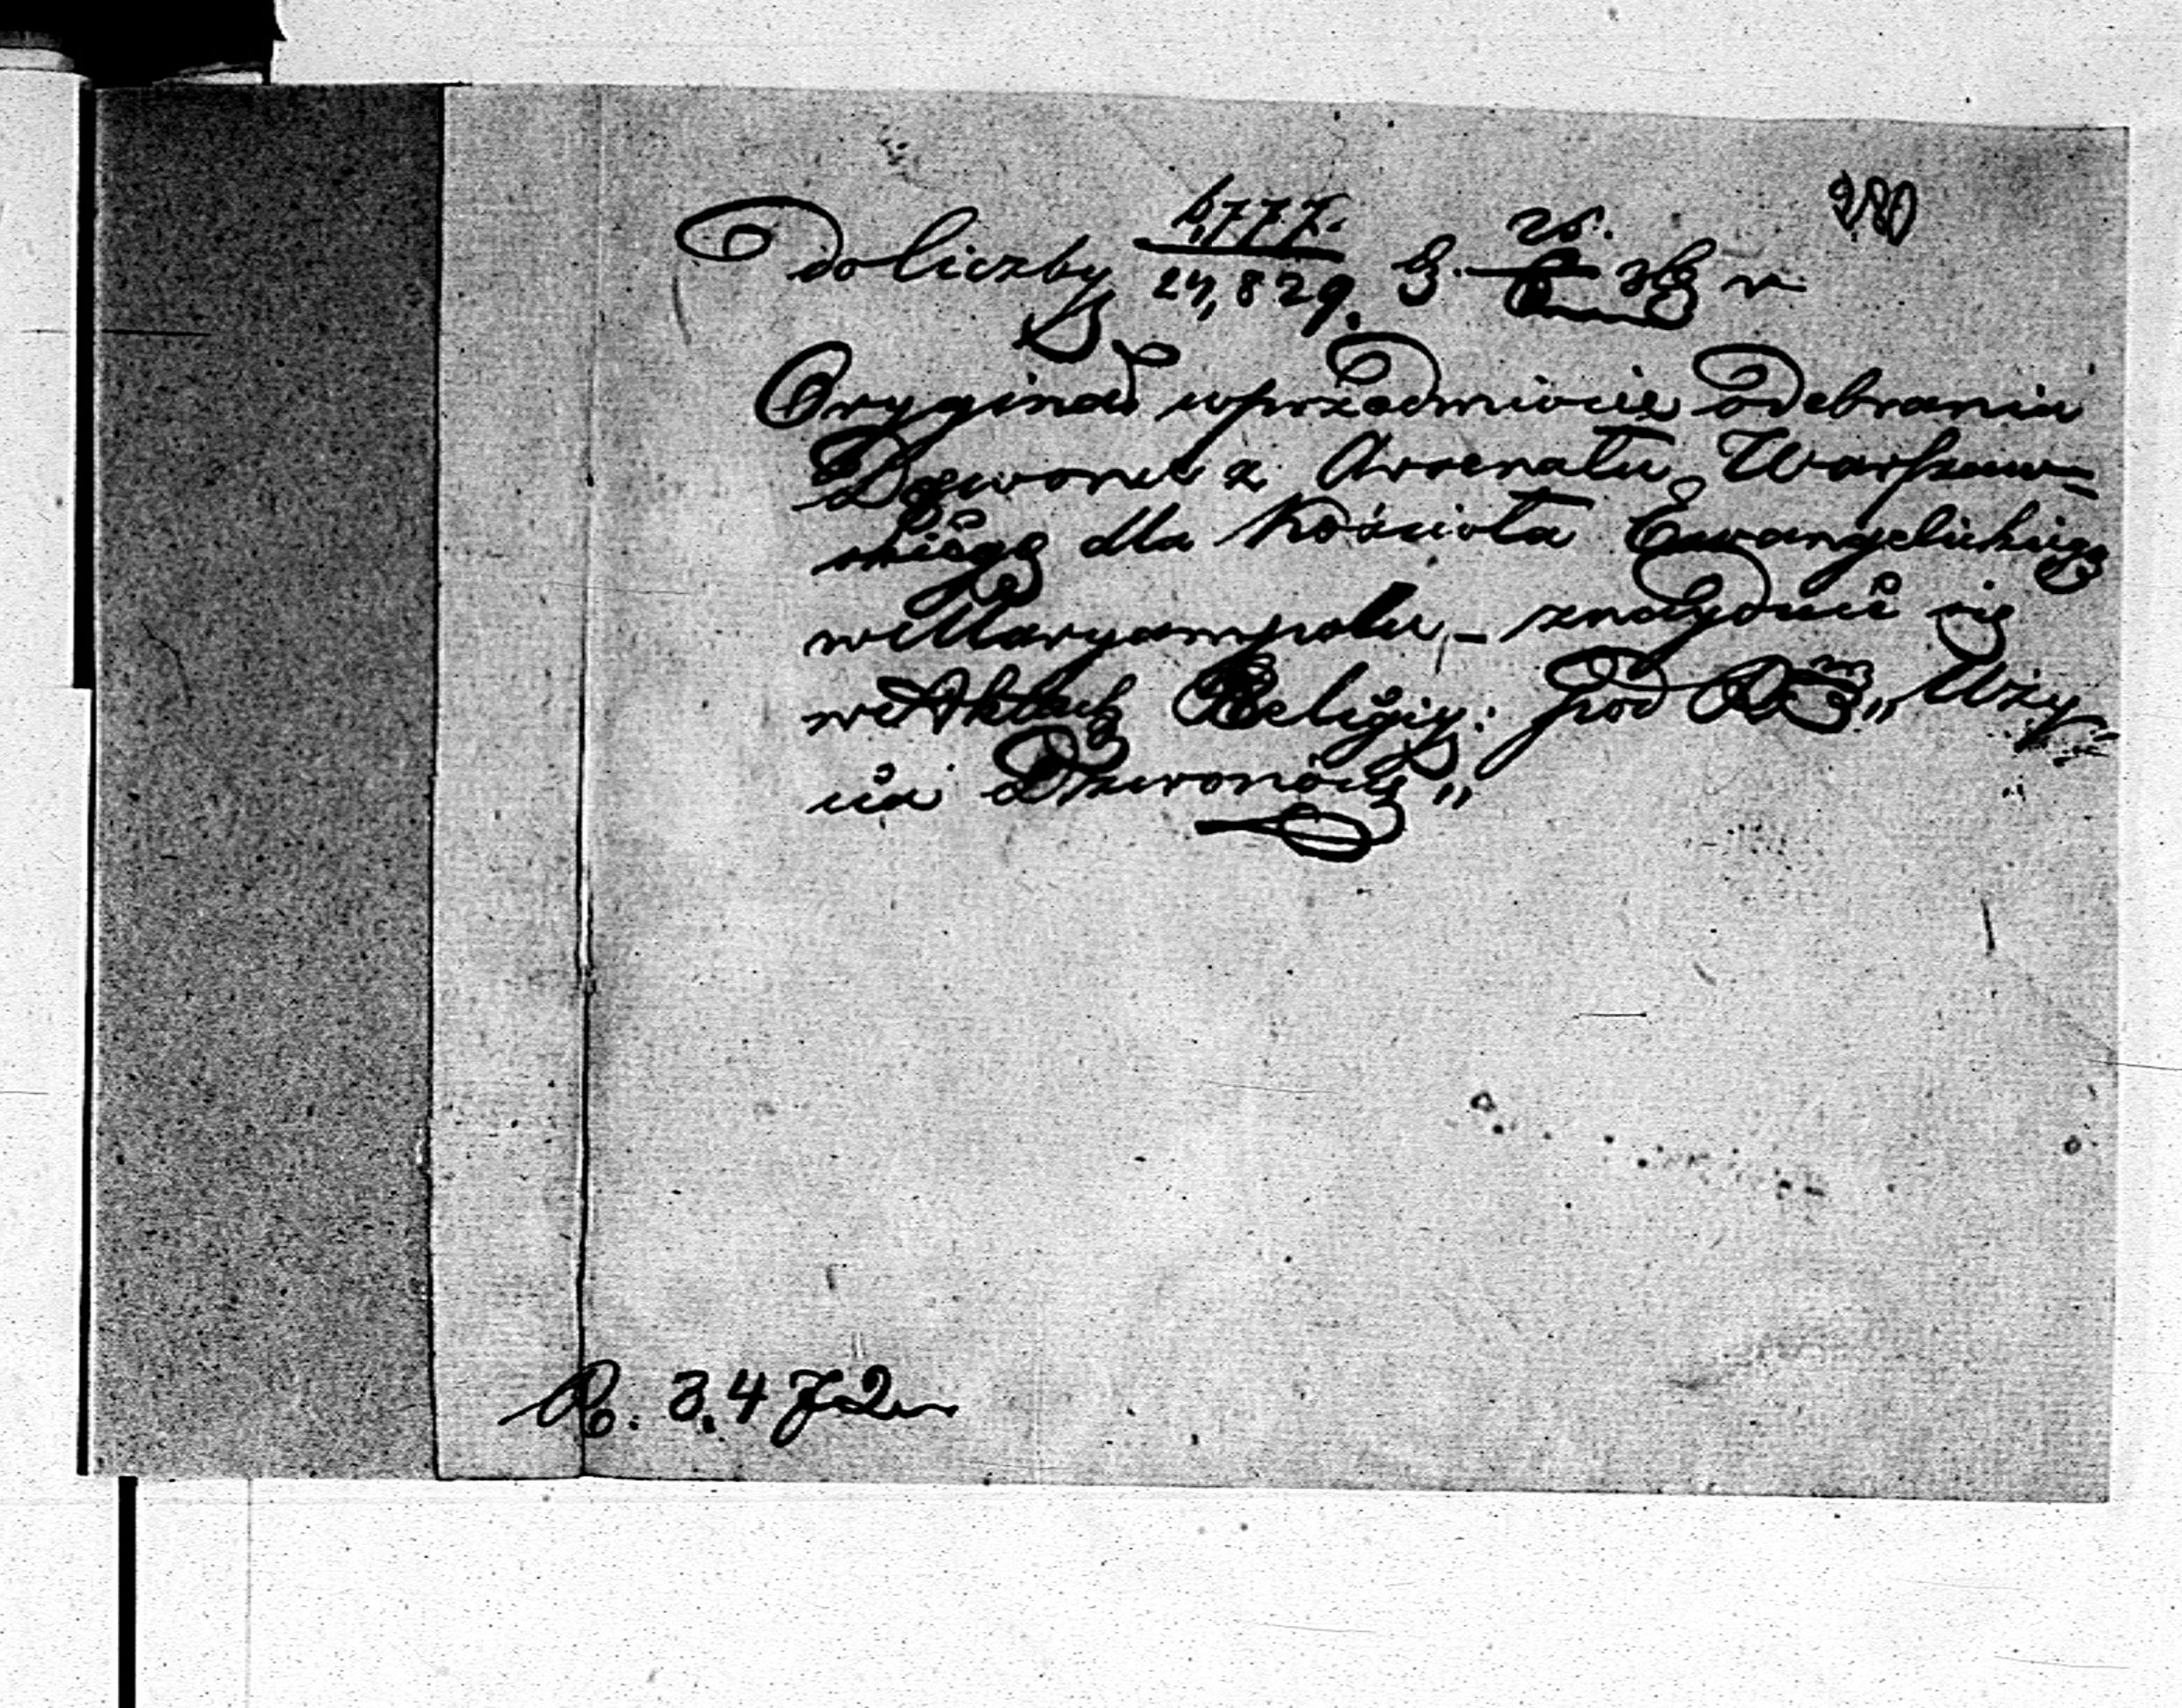 280
do liczby 4,777./24,829.
Oryginał w przedmiocie odebrania
Dzwonu z Arsenału Warszaw-
skiego dla Kościoła Ewangelickiego
w Maryampolu – znayduie się
w Aktach Religiy: pod „Uży-
cia Dzwonów„